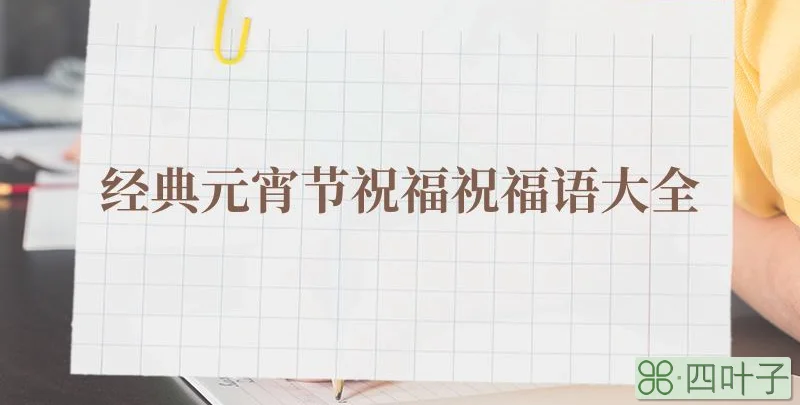 经典元宵节祝福祝福语大全
四叶子